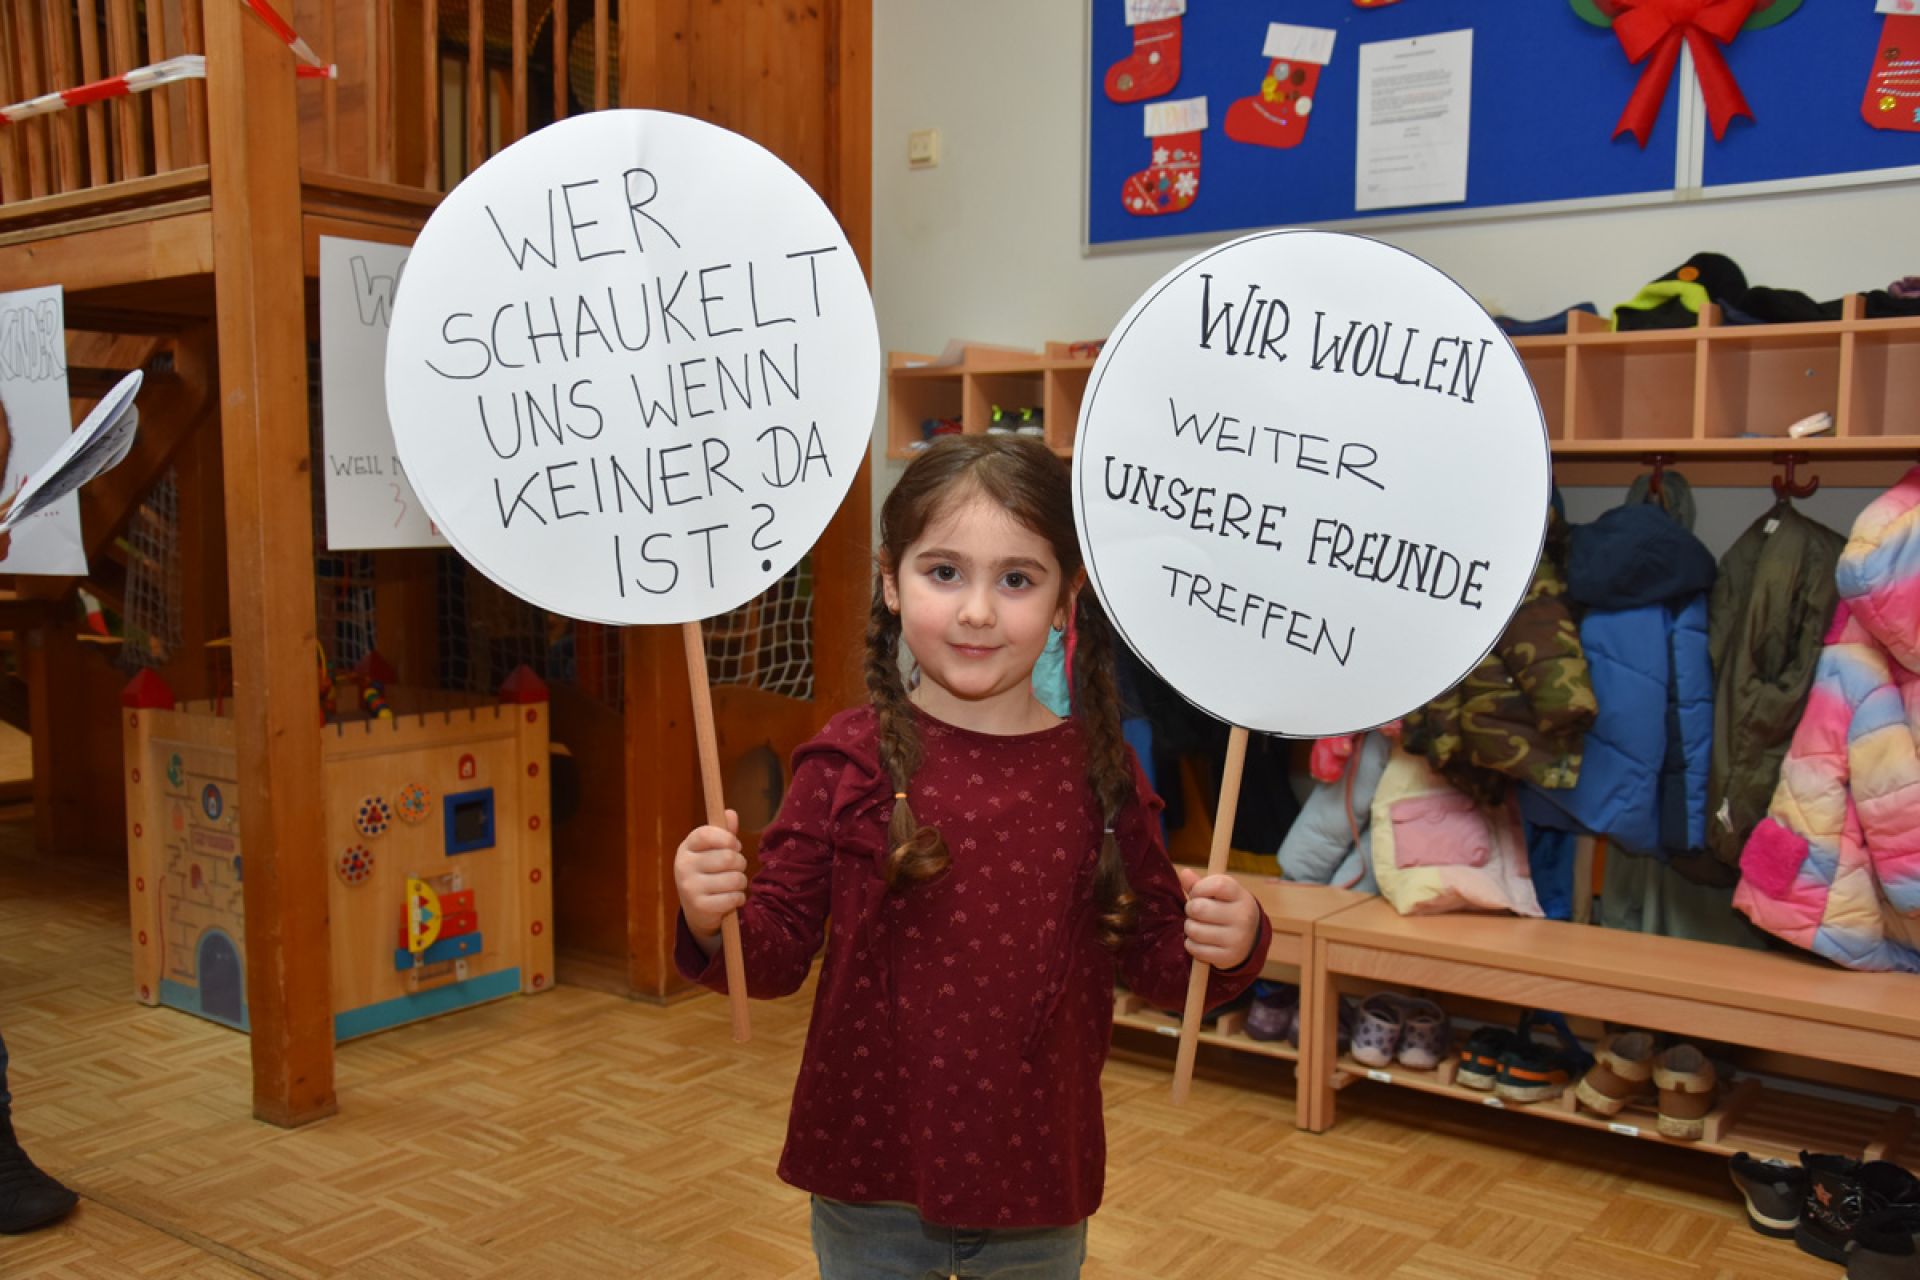 WER
SCHAUKELT
UNS WENN
KEINER DA
IST?
WIR WOLLEN
WEITER
UNSERE FREUNDE
TREFFEN
KINDER
WEIL